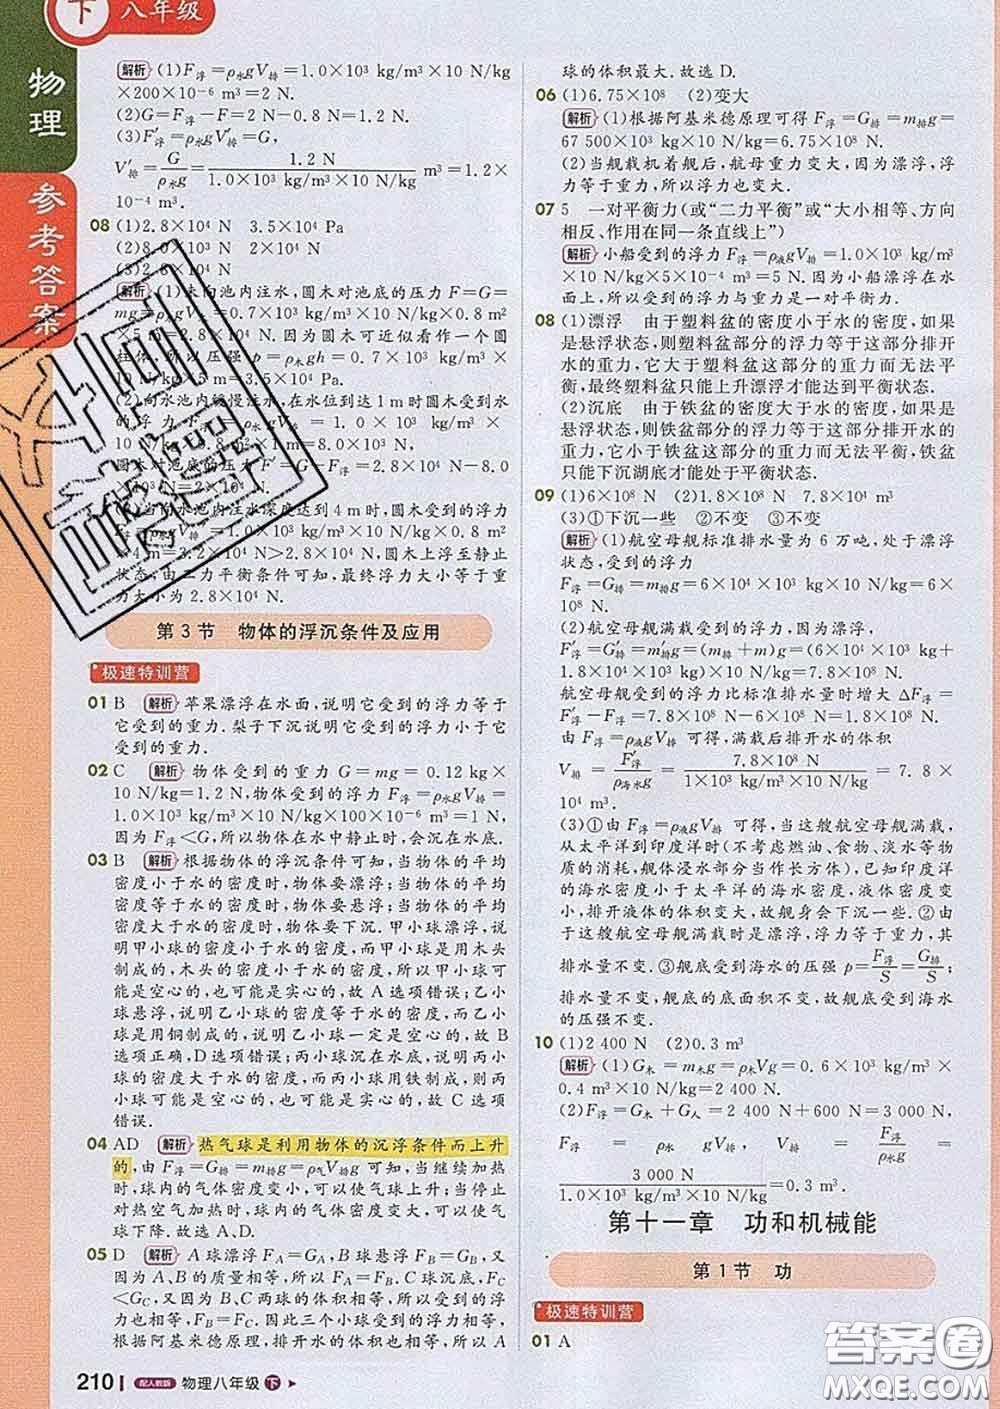 下 八年级
物理
参考答案
解析 (1)F浮=ρ水gV排=1.0×10³ kg/m³×10 N/kg
×200×10⁻⁶ m³=2 N.
(2)G=F浮-F=2 N-0.8 N=1.2 N.
(3)F′浮=ρ水gV′排=G,
V′排=G/ρ水g=1.2 N/1.0×10³ kg/m³×10 N/kg m³=1.2×
10⁻⁴ m³.
08 (1)2.8×10⁴ N 3.5×10⁴ Pa
(2)8.0×10³ N 2×10⁴ N
(3)2.8×10⁴ N
解析 (1)未向池内注水,圆木对池底的压力 F=G=
mg=ρgV
m×5 m=2.8×10⁴ N. 因为圆木可近似看作一个圆
柱体,所以压强 p=ρ木gh=0.7×10³ kg/m³
×10 N/kg×5 m=3.5×10⁴ Pa.
(2)向水池内缓慢注水,在水位到达 1 m 时圆木受到水
的浮力
m²×1 m=8.0×10³ N,
圆木对池底的压力 F′=G-F浮=2.8×10⁴ N-8.0
×10³ N=2×10⁴ N.
(3)当向水池内注水深度达到 4 m 时,圆木受到的浮力
kg/m³×10 N/kg×0.8 m²
×4 m=3.2×10⁴ N>2.8×10⁴ N. 圆木上浮至静止
状态,由二力平衡条件可知,最终浮力大小等于重
力大小为 2.8×10⁴ N.
第3节 物体的浮沉条件及应用
极速特训营
01 B 解析 苹果漂浮在水面,说明它受到的浮力等于
它受到的重力. 梨子下沉说明它受到的浮力小于它
受到的重力.
02 C 解析 物体受到的重力 G=mg=0.12 kg×
10 N/kg=1.2 N,物体受到的浮力 F浮=ρ水gV排=
1.0×10³ kg/m³×10 N/kg×100×10⁻⁶ m³=1 N,
因为 F浮<G,所以物体在水中静止时,会沉在水底.
03 B 解析 根据物体的浮沉条件可知,当物体的平均
密度小于水的密度时,物体要漂浮;当物体的平均
密度等于水的密度时,物体要悬浮;当物体的平均
密度大于水的密度时,物体要下沉. 甲小球漂浮,说
明甲小球的密度小于水的密度,而甲小球是用木头
制成的,木头的密度小于水的密度,所以甲小球可
能是空心的,也可能是实心的,故 A 选项错误;乙小
球悬浮,说明乙小球的密度等于水的密度,而乙小
球是用铜制成的,说明乙小球一定是空心的,故 B
选项正确,D 选项错误;丙小球下沉,说明丙小球的
密度大于水的密度,而丙小球用铁制成,则丙小
球可能是空心的,也可能是实心的,故 C 选项
错误.
04 AD 解析 热气球是利用物体的沉浮条件而上升
的,由 F浮=G排=m排g=ρ气V排g 可知,当继续加热
时,球内的气体密度变小,可以使气球上升;当停止
对热空气加热时,球内的气体密度变大,可以使气
球下降. 故选 A、D.
05 D 解析 A 球漂浮 FA=GA,B 球悬浮 FB=GB,又
因为 A、B 的质量相等,所以 FA=FB. C 球沉底,FC
<GC,又因为 B、C 两球的体积相等,所以受到的浮
力也相等,FB=FC. 因此三个小球受到的浮力相等,
根据阿基米德原理,排开水的体积也相等,所以 A
球的体积最大. 故选 D.
06 (1)6.75×10⁸ (2)变大
解析 (1)根据阿基米德原理可得 F浮=G排=m排g=
67 500×10³ kg×10 N/kg=6.75×10⁸ N.
(2)当舰载机着舰后,航母重力变大,因为漂浮,浮
力等于重力,所以浮力也变大.
07 5 一对平衡力(或“二力平衡”或“大小相等、方向
相反、作用在同一条直线上”)
解析 小船受到的浮力 F浮=ρ液gV排=1.0×10³
kg/m³×10 N/kg×5×10⁻⁴ m³=5 N. 因为小船漂浮在水
面上,所以受到的浮力与重力是一对平衡力.
08 (1)漂浮 由于塑料盆的密度小于水的密度,如果
是悬浮状态,则塑料盆部分的浮力等于这部分排开
水的重力,它大于塑料盆这部分的重力而无法平
衡,最终塑料盆只能上升漂浮才能达到平衡状态.
(2)沉底 由于铁盆的密度大于水的密度,如果是
悬浮状态,则铁盆部分的浮力等于这部分排开水的重
力,它小于铁盆这部分的重力而无法平衡,铁盆
只能下沉湖底才能处于平衡状态.
09 (1)6×10⁸ N (2)1.8×10⁸ N 7.8×10⁴ m³
(3)①下沉一些 ②不变 ③不变
解析 (1)航空母舰标准排水量为 6 万吨,处于漂浮
状态,受到的浮力
F浮=G排=m排g=6×10⁴×10³ kg×10 N/kg=6×
10⁸ N.
(2)航空母舰满载受到的浮力,因为漂浮,
F′浮=G′排=m′排g=(m排+m)g=(6×10⁴×10³ kg+
1.8×10⁷ kg)×10 N/kg=7.8×10⁸ N.
航空母舰满载受到的浮力比标准排水量时增大 ΔF浮=
F′浮-F浮=7.8×10⁸ N-6×10⁸ N=1.8×10⁸ N.
由 F浮=ρ液gV排 可得,满载后排开水的体积
V排=F′浮/ρ海水g=7.8×10⁸ N/1×10³ kg/m³×10 N/kg=7.8×
10⁴ m³.
(3)①由 F浮=ρ液gV排 可得,当这艘航空母舰满载,
从太平洋到印度洋时(不考虑燃油、食物、淡水等物质
的消耗,舰体浸水部分当作长方体),已知印度洋
的海水密度小于太平洋的海水密度,液体密度变
小,排开液体的体积变大,故舰身会下沉一些. ②由
于这艘航空母舰满载时是漂浮,浮力等于重力,其
排水量不变. ③舰底受到海水的压强 p=F浮/S=G排/S;
排水量不变,舰底的底面积不变,故舰底受到海水
的压强不变.
10 (1)2 400 N (2)0.3 m³
解析 (1)G木=m木g=ρ木Vg=0.6×10³ kg/m³×
0.4 m³×10 N/kg=2 400 N.
(2)F浮=G木+G人=2 400 N+600 N=3 000 N,
F浮=ρ水gV排,V排=F浮/ρ水g=
3 000 N/1.0×10³ kg/m³×10 N/kg=0.3 m³.
第十一章 功和机械能
第1节 功
极速特训营
01 A
210 配人教版 物理八年级 下
答案圈
MXQE.COM